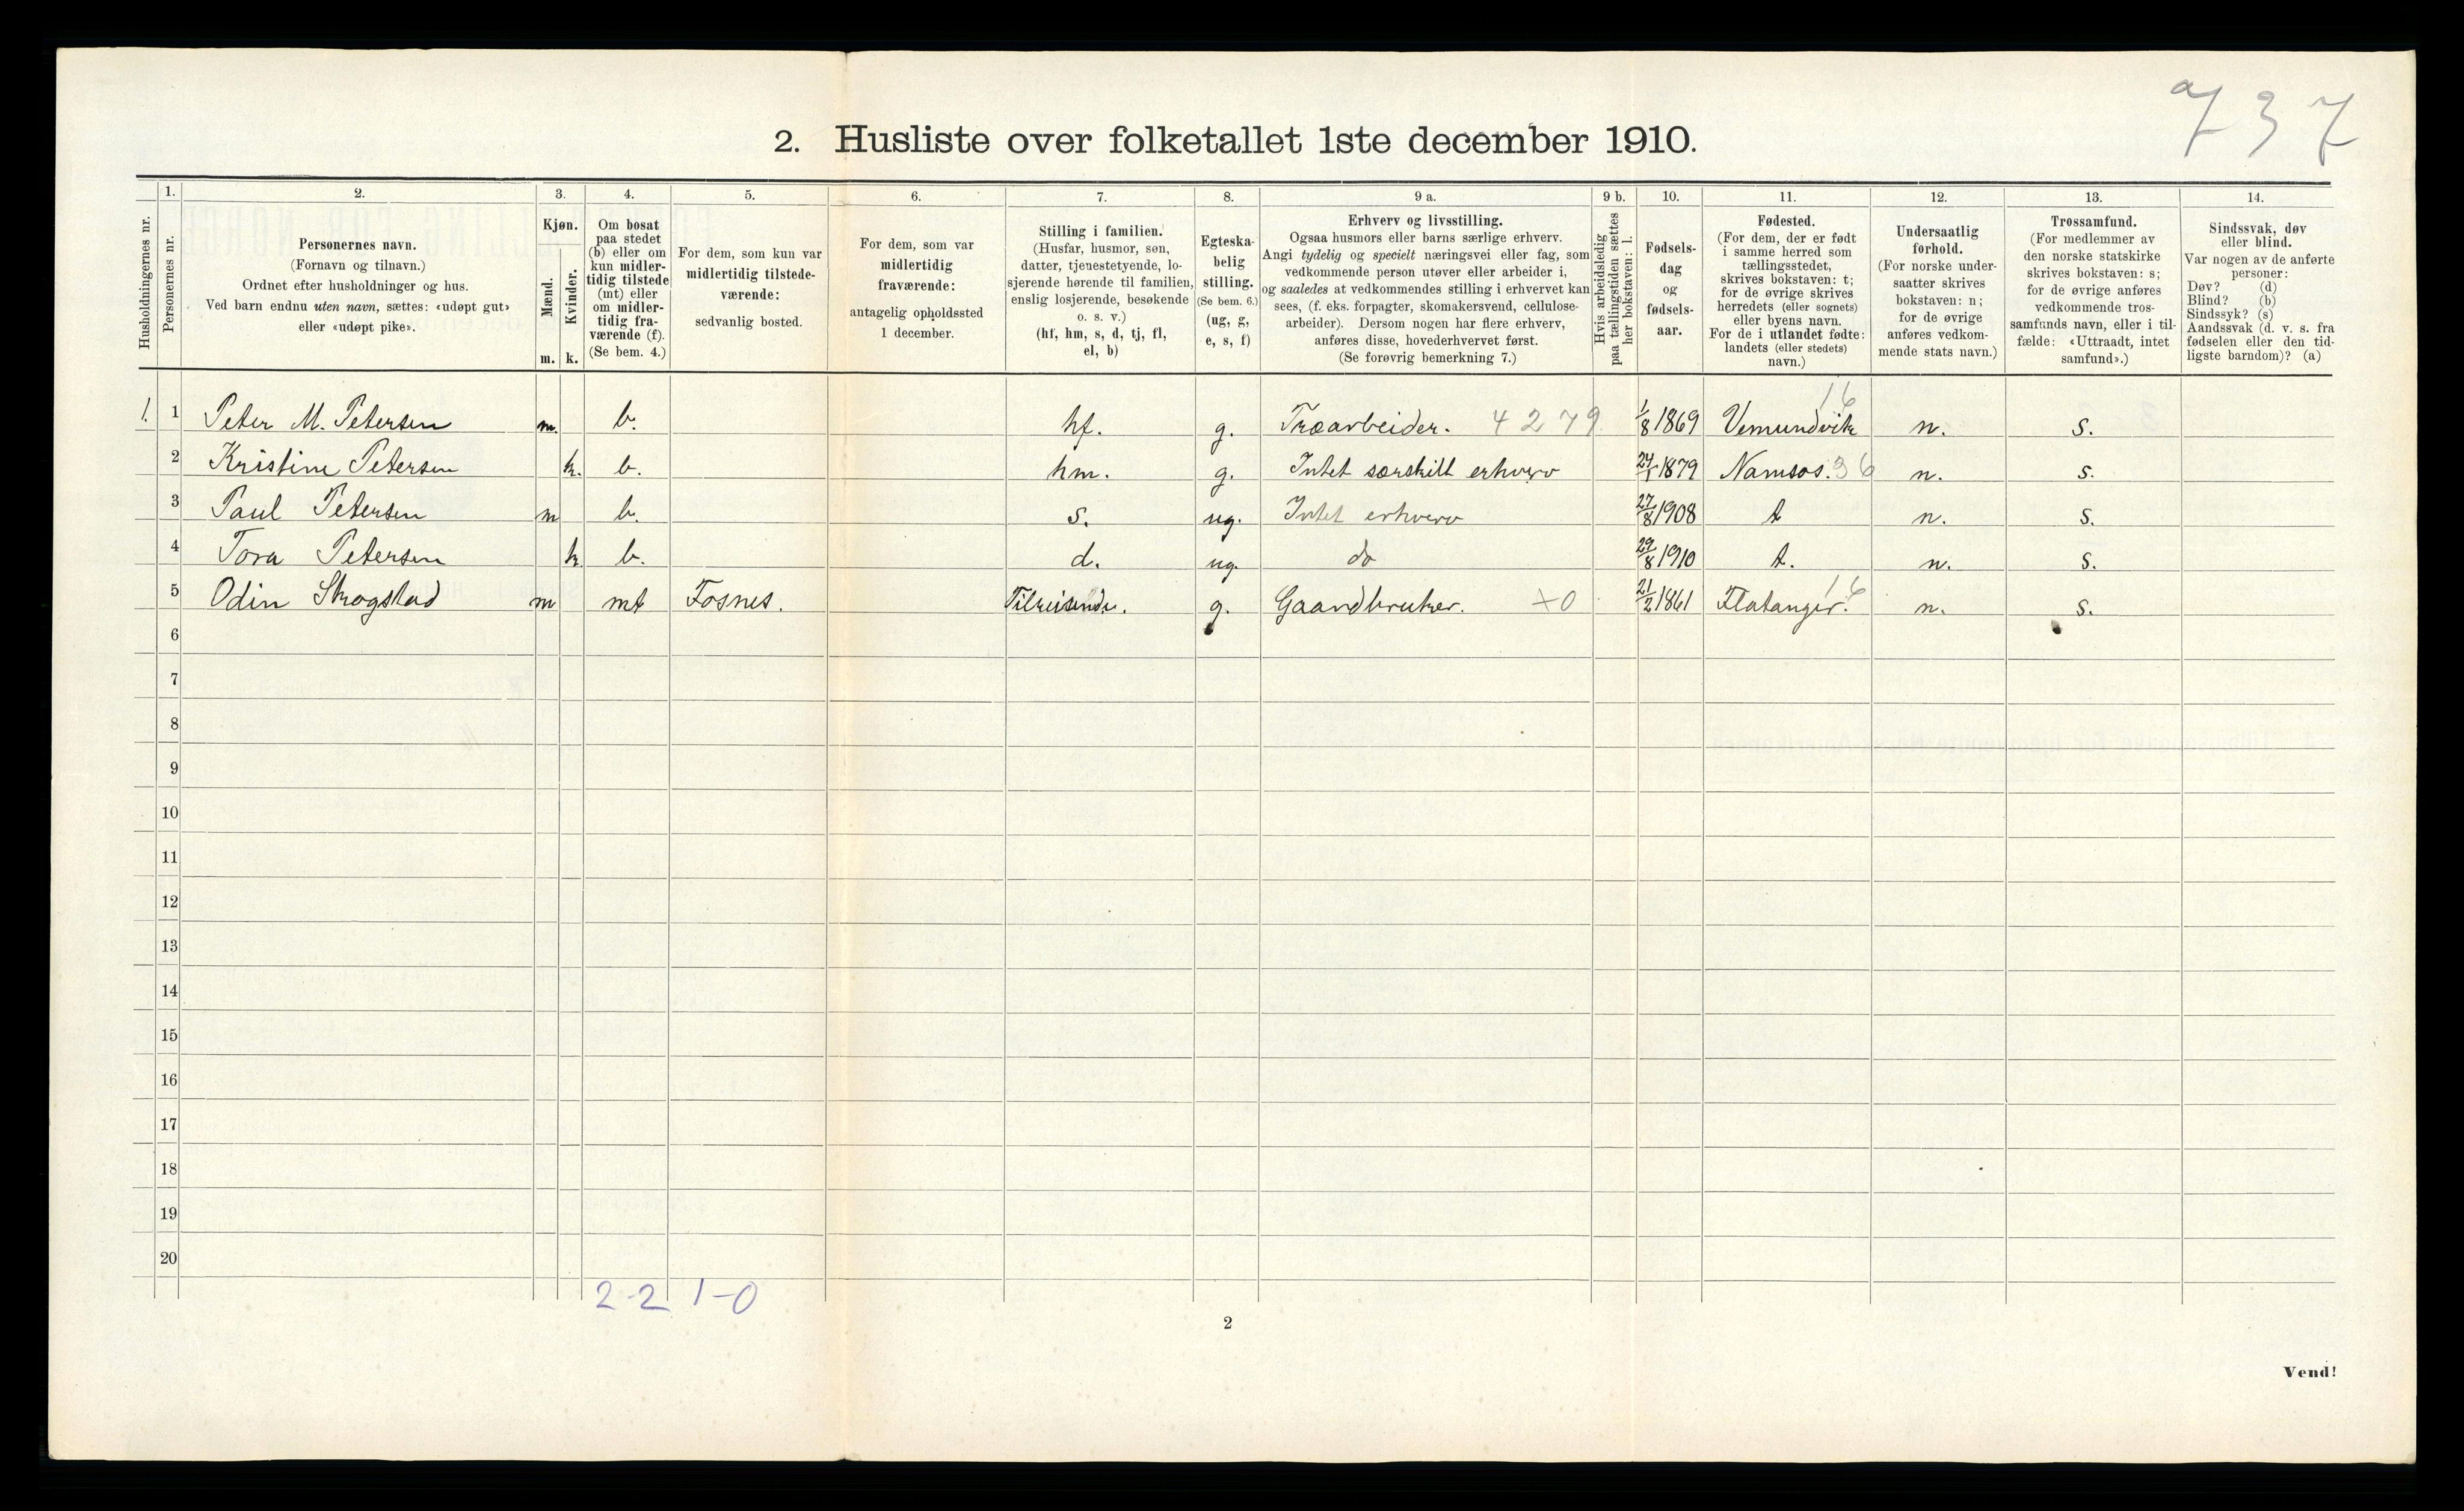 737
2. Husliste over folketallet 1ste december 1910.
Husholdningernes nr.
1.
Personernes nr.
2.
Personernes navn.
(Fornavn og tilnavn.)
Ordnet efter husholdninger og hus.
Ved barn endnu uten navn, sættes: «udøpt gut»
eller «udøpt pike».
3.
Kjøn.
Mænd.
Kvinder.
m. k.
4.
Om bosat
paa stedet
(b) eller om
kun midler-
tidig tilstede
(mt) eller
om midler-
tidig fra-
værende (f).
(Se bem. 4.)
5.
For dem, som kun var
midlertidig tilstede-
værende:
sedvanlig bosted.
6.
For dem, som var
midlertidig
fraværende:
antagelig opholdssted
1 december.
7.
Stilling i familien.
(Husfar, husmor, søn,
datter, tjenestetyende, lo-
sjerende hørende til familien,
enslig losjerende, besøkende
o. s. v.)
(hf, hm, s, d, tj, fl,
el, b)
8.
Egteska-
belig
stilling.
(Se bem. 6.)
(ug, g,
e, s, f)
9 a.
Erhverv og livsstilling.
Ogsaa husmors eller barns særlige erhverv.
Angi tydelig og specielt næringsvei eller fag, som
vedkommende person utøver eller arbeider i,
og saaledes at vedkommendes stilling i erhvervet kan
sees, (f. eks. forpagter, skomakersvend, cellulose-
arbeider). Dersom nogen har flere erhverv,
anføres disse, hovederhvervet først.
(Se forøvrig bemerkning 7.)
9 b.
Hvis arbeidsledig
paa tællingstiden sættes
her bokstaven: l.
10.
Fødsels-
dag
og
fødsels-
aar.
11.
Fødested.
(For dem, der er født
i samme herred som
tællingsstedet,
skrives bokstaven: t;
for de øvrige skrives
herredets (eller sognets)
eller byens navn.
For de i utlandet fødte:
landets (eller stedets)
navn.)
12.
Undersaatlig
forhold.
(For norske under-
saatter skrives
bokstaven: n;
for de øvrige
anføres vedkom-
mende stats navn.)
13.
Trossamfund.
(For medlemmer av
den norske statskirke
skrives bokstaven: s;
for de øvrige anføres
vedkommende tros-
samfunds navn, eller i til-
fælde: «Uttraadt, intet
samfund».)
14.
Sindssvak, døv
eller blind.
Var nogen av de anførte
personer:
Døv? (d)
Blind? (b)
Sindssyk? (s)
Aandssvak (d. v. s. fra
fødselen eller den tid-
ligste barndom)? (a)
1. 1 Peter M. Petersen m. b. hf. g. Træarbeider. 4279 1/8 1869 Vemundvik 16 n. s.
2 Kristine Petersen k. b. hm. g. Intet særskilt erhverv 24/1 1879 Namsos. 36 n. s.
3 Paul Petersen m b. s. ug. Intet erhverv 27/8 1908 t n. s.
4 Tora Petersen k b. d. ug. do 29/8 1910 t. n. s.
5 Odin Skogstad m mt Fosnes. Tilreisende. g. Gaardbruker. +0 21/2 1861 Flatanger. 16 n. s.
6
7
8
9
10
11
12
13
14
15
16
17
18
19
20
2-2 1-0
2
Vend!